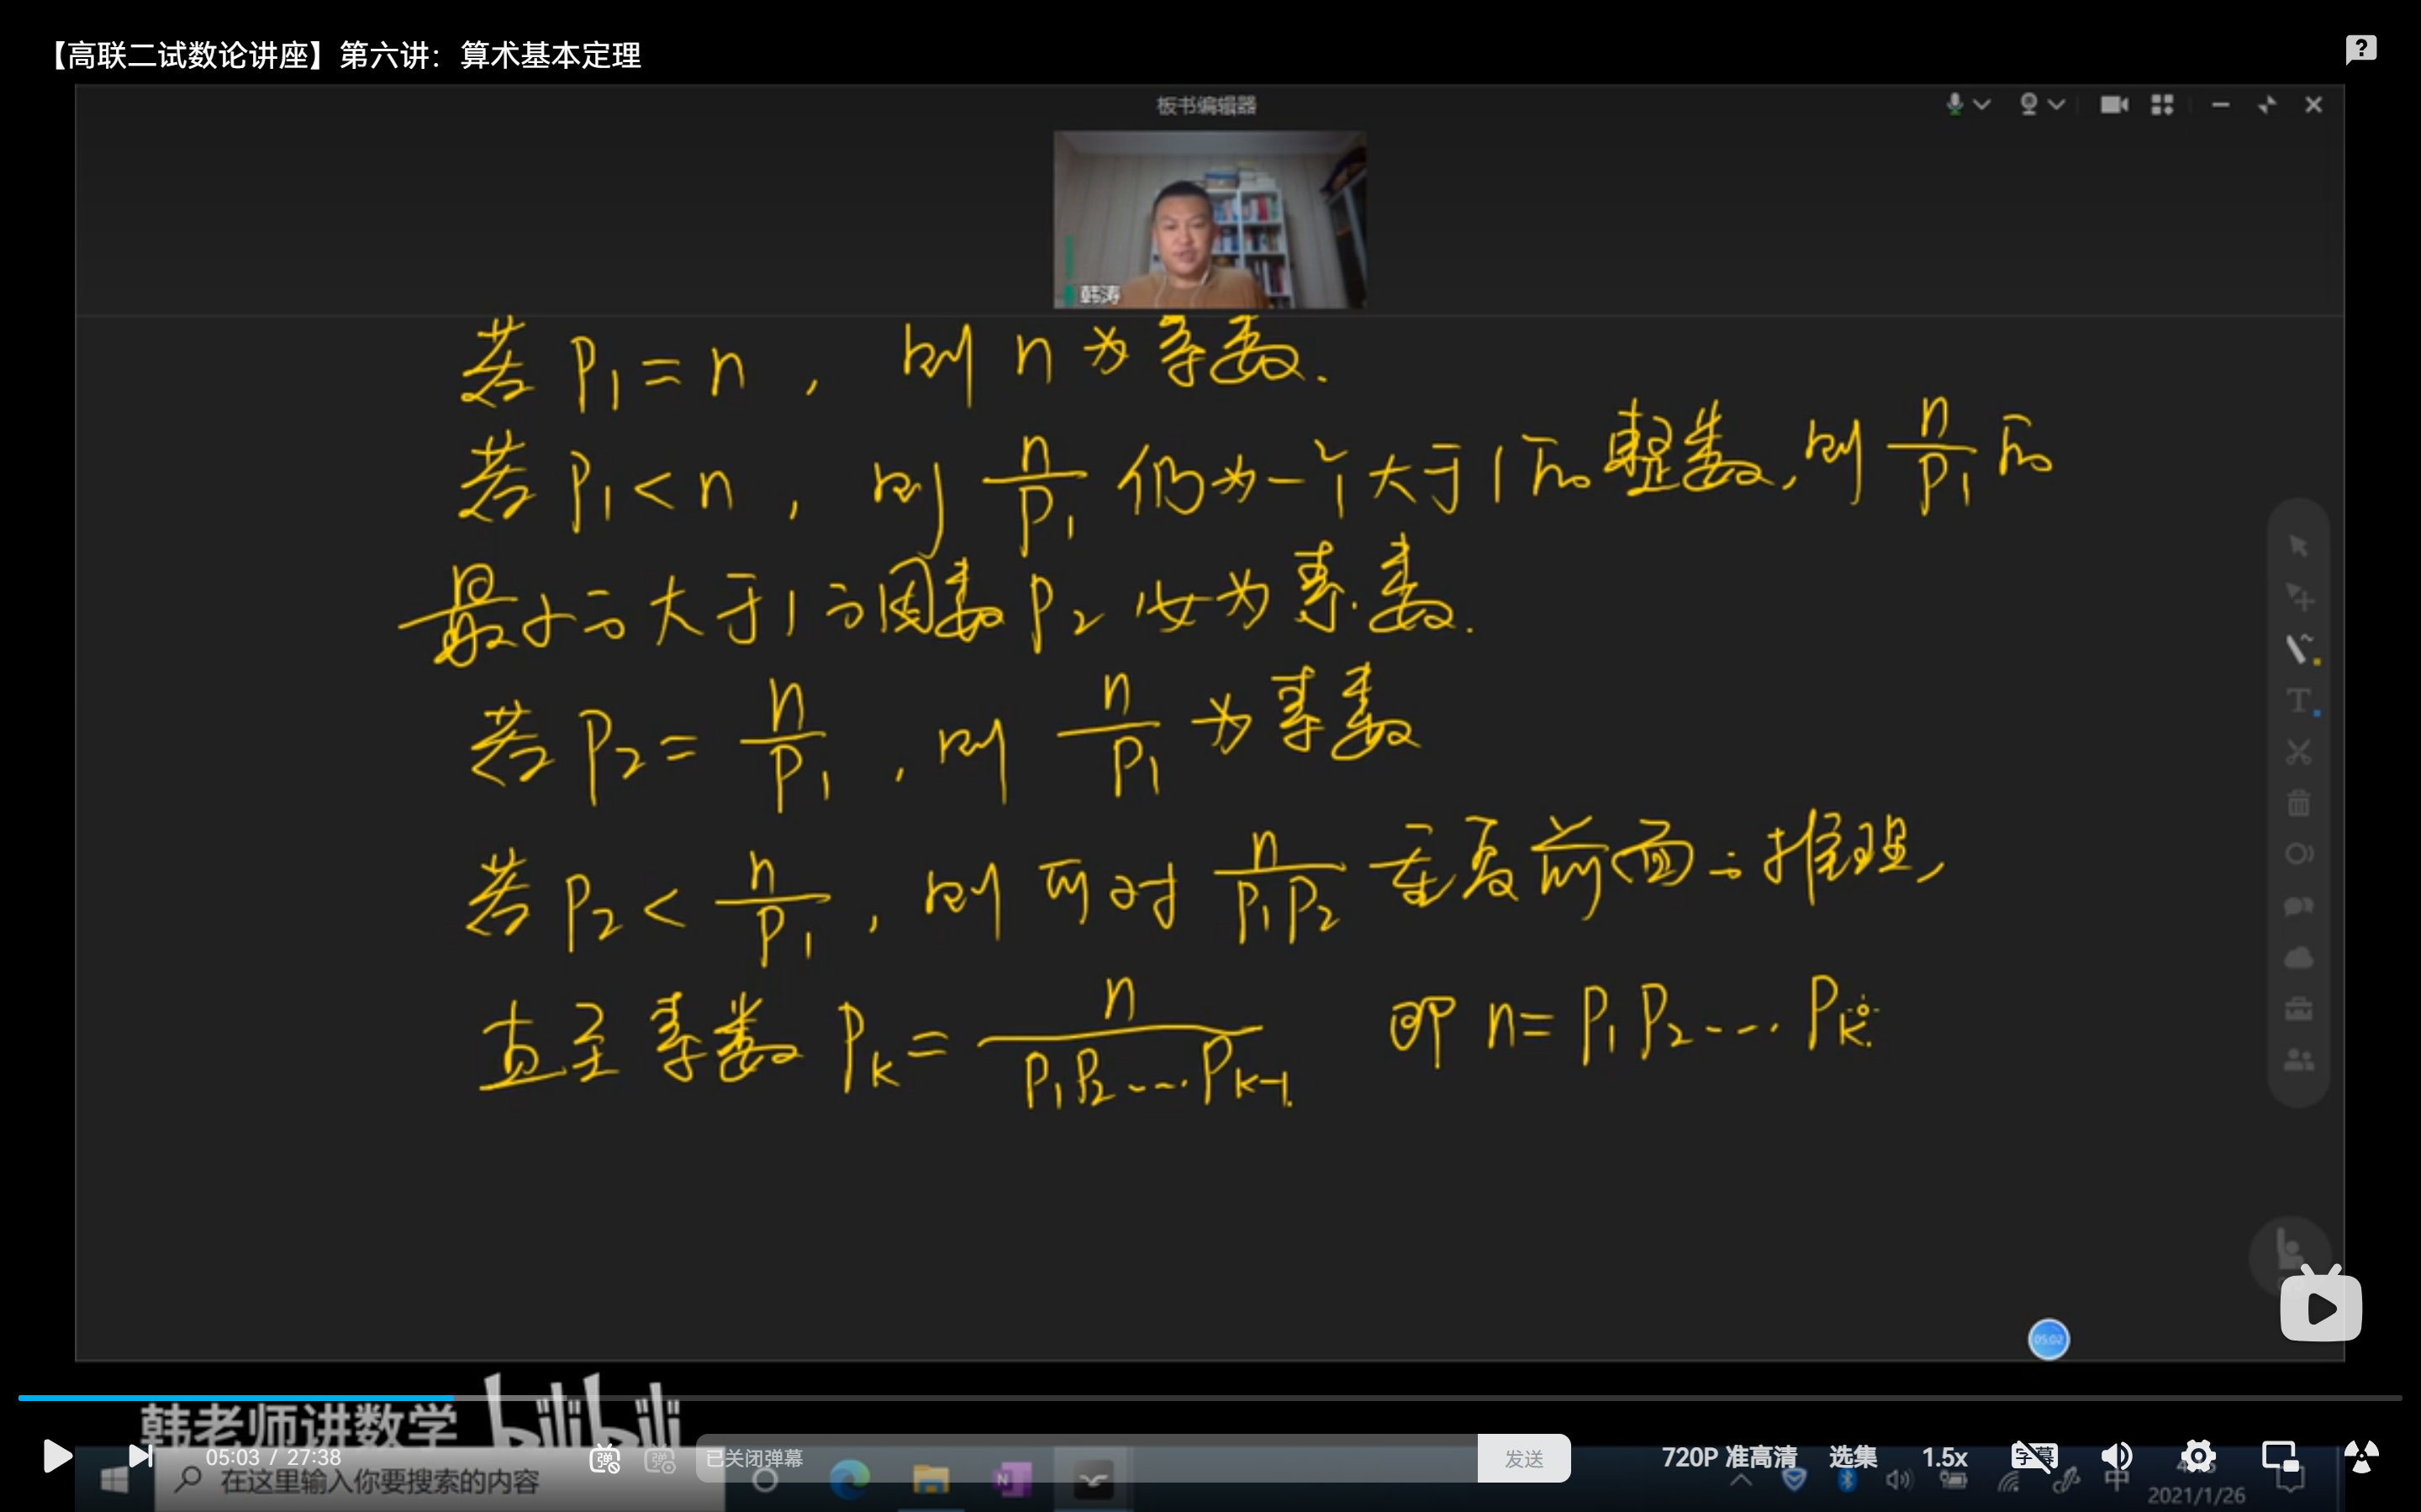 【高联二试数论讲座】第六讲：算术基本定理
板书编辑器
韩涛
若 P₁ = n , 则 n 为素数.
若 P₁ < n , 则 n/P₁ 仍为一个大于1的整数, 则 n/P₁ 的
最小的大于1的因数 P₂ 必为素数.
若 P₂ = n/P₁ , 则 n/P₁ 为素数
若 P₂ < n/P₁ , 则可对 n/P₁P₂ 重复前面的推理,
直至素数 Pₖ = n/P₁P₂…Pₖ₋₁. 即 n = P₁P₂…Pₖ.
05:02
韩老师讲数学 bilibili
05:03 / 27:38
已关闭弹幕
发送
720P 准高清
选集
1.5x
在这里输入你要搜索的内容
中
2021/1/26